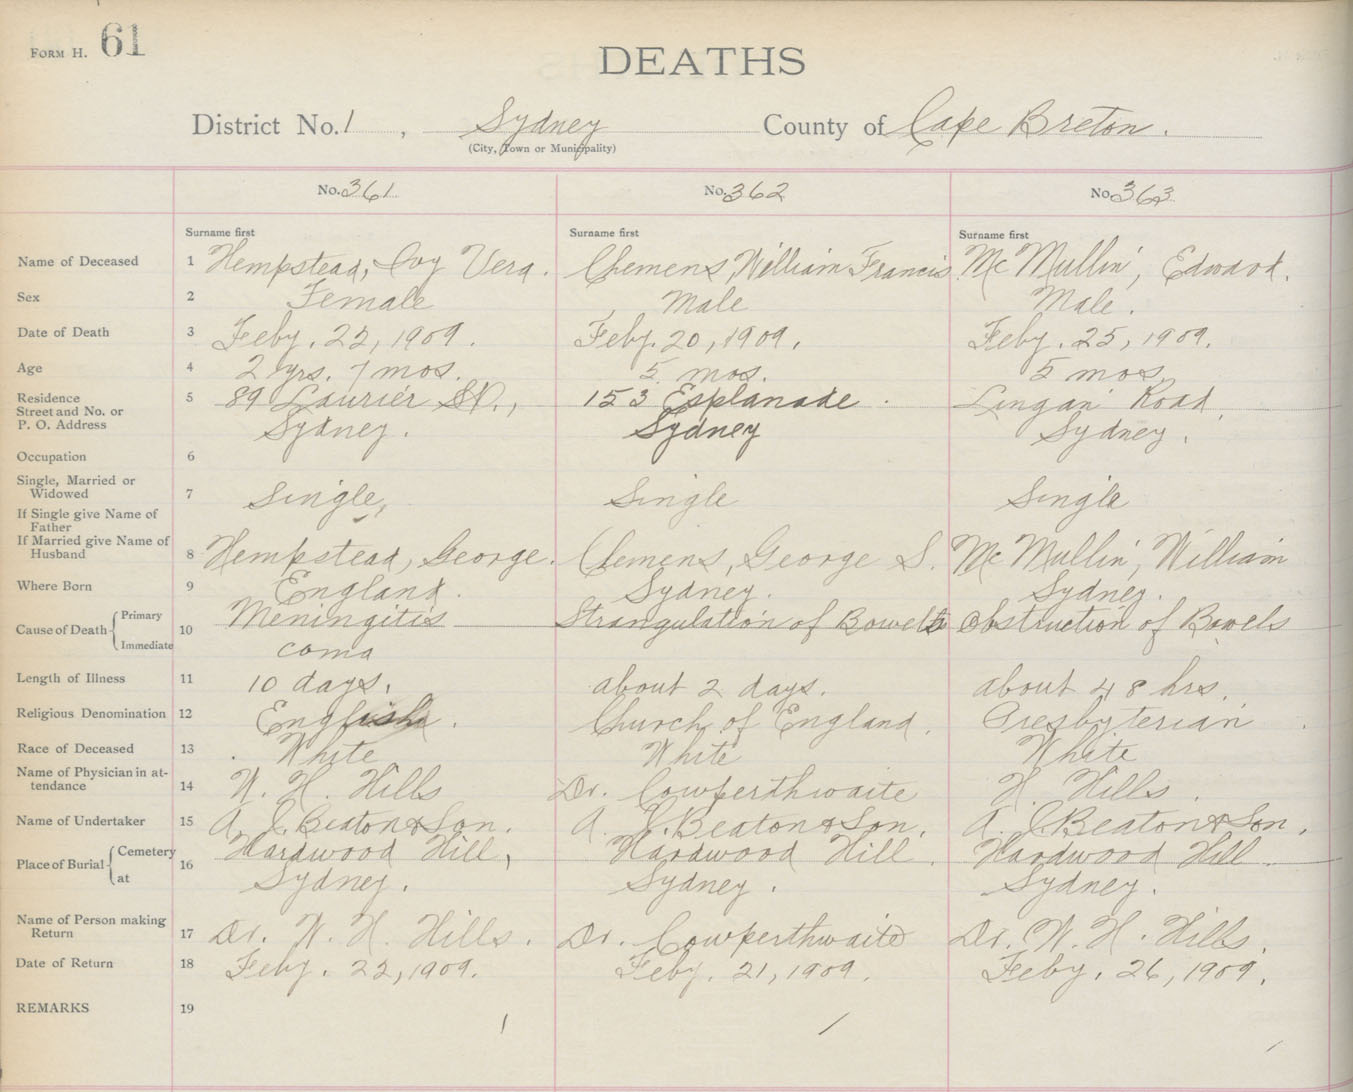 FORM H. 61
DEATHS
District No. 1, Sydney County of Cape Breton.
(City, Town or Municipality)
No. 361 No. 362 No. 363
Surname first Surname first Surname first
Name of Deceased 1 Hempstead, Ivy Vera. Clemens, William Francis Mc Mullin, Edward.
Sex 2 Female Male Male.
Date of Death 3 Feby. 22, 1909. Feby. 20, 1909. Feby. 25, 1909.
Age 4 2 yrs. 7 mos. 5 mos. 5 mos
Residence 5 89 Laurier St., 153 Esplanade. Lingan Road,
Street and No. or
P. O. Address Sydney. Sydney Sydney.
Occupation 6
Single, Married or
Widowed 7 Single, Single Single
If Single give Name of
Father
If Married give Name of
Husband 8 Hempstead, George. Clemens, George S. Mc Mullin, William
Where Born 9 England. Sydney. Sydney.
Cause of Death Primary 10 Meningitis Strangulation of Bowels Obstruction of Bowels
Immediate coma
Length of Illness 11 10 days. about 2 days. about 48 hrs.
Religious Denomination 12 English. Church of England. Presbyterian.
Race of Deceased 13 White White White
Name of Physician in at-
tendance 14 W. H. Hills Dr. Cowperthwaite H. Hills.
Name of Undertaker 15 A. J. Beaton & Son. A. J. Beaton & Son. A. J. Beaton & Son.
Place of Burial Cemetery 16 Hardwood Hill, Hardwood Hill. Hardwood Hill
at Sydney. Sydney. Sydney.
Name of Person making
Return 17 Dr. W. H. Hills. Dr. Cowperthwaite Dr. W. H. Hills.
Date of Return 18 Feby. 22, 1909. Feby. 21, 1909. Feby. 26, 1909.
REMARKS 19